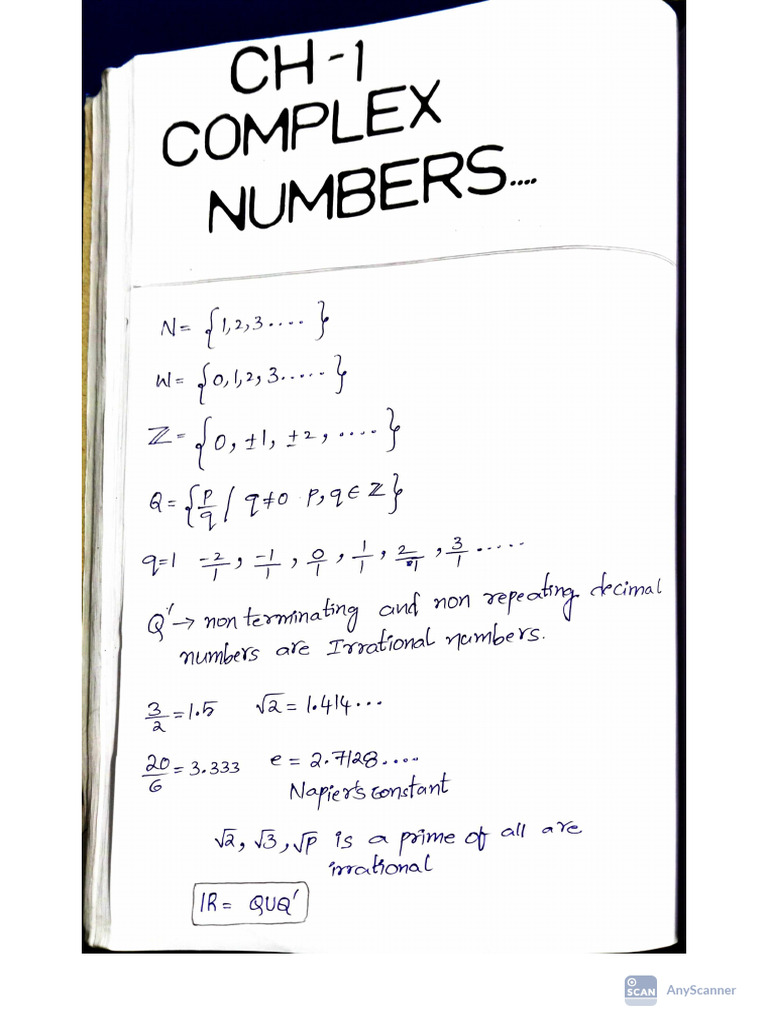 CH-1
COMPLEX
NUMBERS....
N= {1,2,3....}
W= {0,1,2,3.....}
ℤ= {0, ±1, ±2, ....}
Q= {p/q / q≠0 p,q∈ℤ}
q=1 -2/1, -1/1, 0/1, 1/1, 2/1, 3/1 .....
Q' → non terminating and non repeating decimal
numbers are Irrational numbers.
3/2 =1.5 √2 = 1.414...
20/6 = 3.333 e = 2.7128....
Napier's constant
√2, √3, √p is a prime of all are
irrational
IR= QUQ'
SCAN AnyScanner